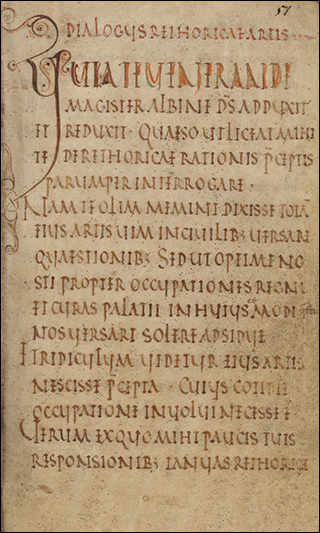 51
DIALOGUS RETHORICAE ARTIS
QUIA TE UENERANDE
MAGISTER ALBINE DS ADDUXIT
ET REDUXIT · QUAESO UT LICEAT MIHI
TE DE RETHORICAE RATIONIS PCEPTIS
PARUMPER INTERROGARE ·
NAM TE OLIM MEMINI DIXISSE TOTA
EIUS ARTIS UIM IN CIUILIB; UERSARI
QUAESTIONIB; SED UT OPTIME NO
STI PROPTER OCCUPATIONES REGNI
ET CURAS PALATII IN HUIUSCEMODI
NOS UERSARI SOLERE ADSIDUE
ET RIDICULUM UIDETUR EIUS ARTIS
NESCISSE PCEPTA · CUIUS COTIDIE
OCCUPATIONE INUOLUI NECESSE E
UERUM EX QUO MIHI PAUCIS TUIS
RESPONSIONIB; IANUAS RETHORICE